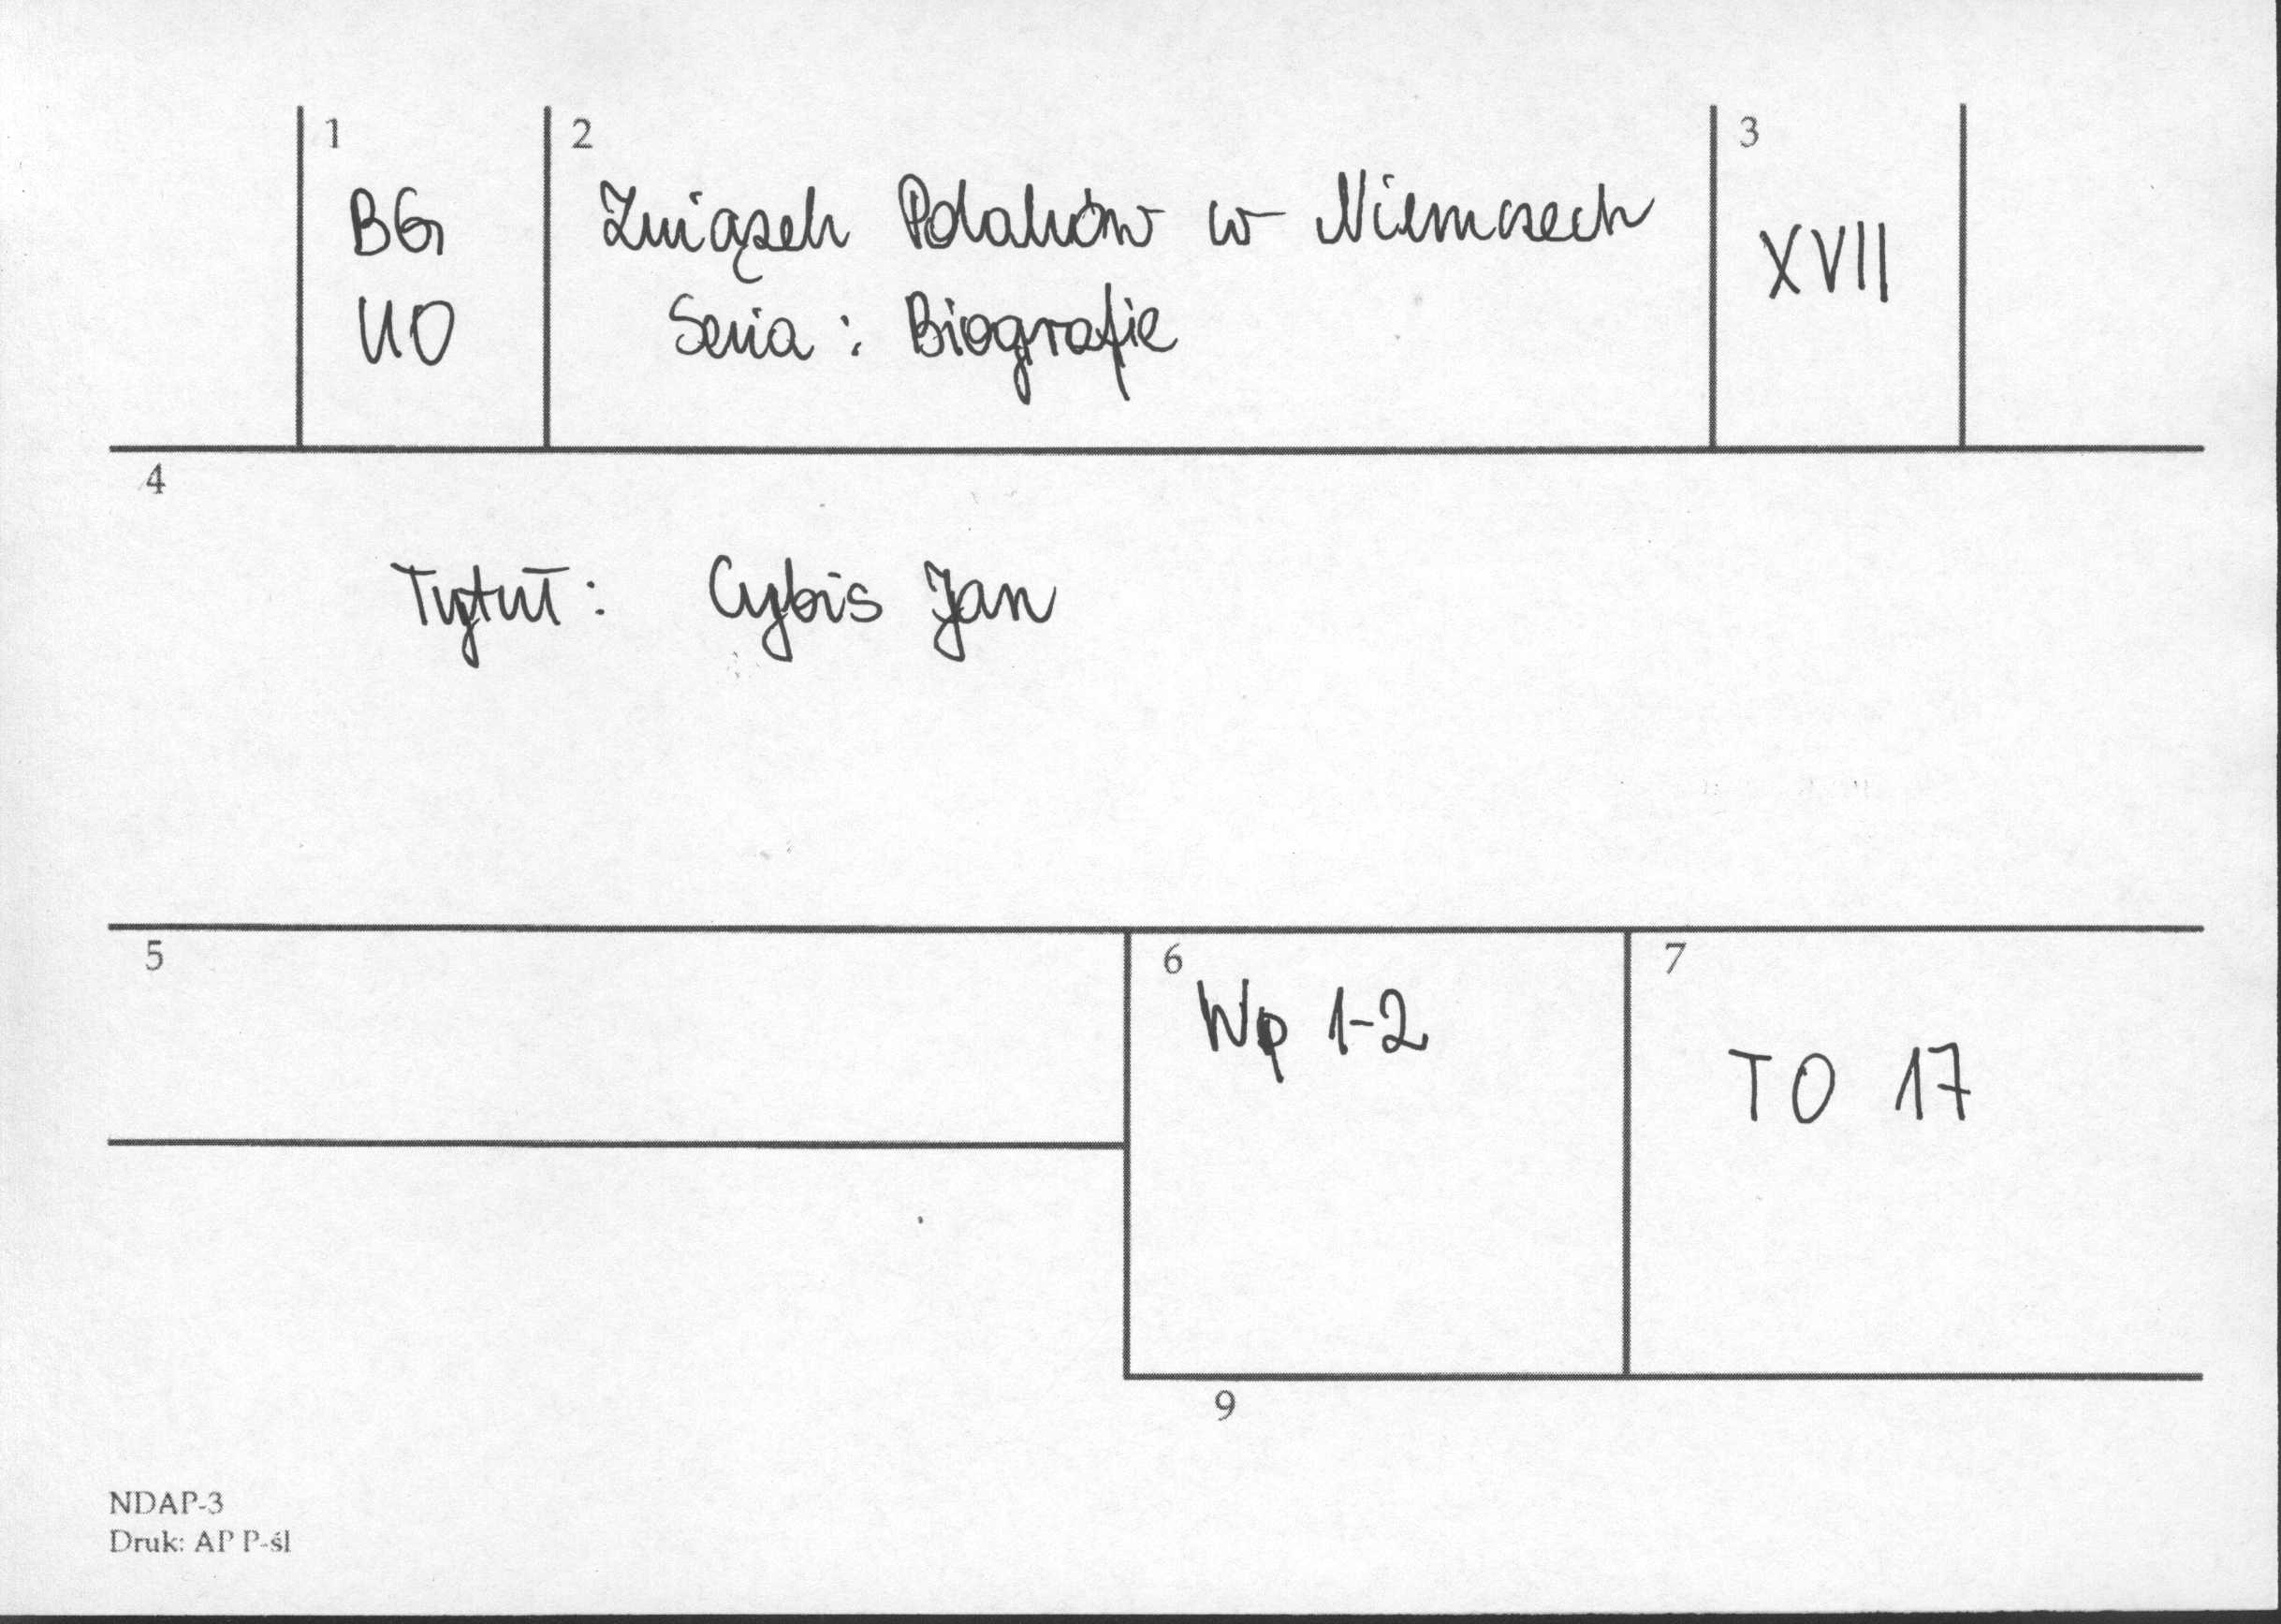 1
BG
UO
2
Związek Polaków w Niemczech
Seria : Biografie
3
XVII
4
Tytuł: Cybis Jan
5
6
Wp 1-2
7
TO 17
9
NDAP-3
Druk: AP P-śl